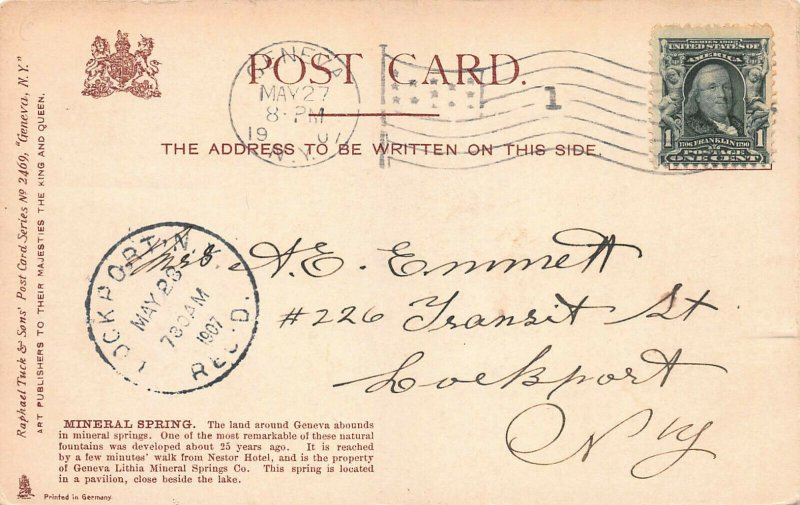 Raphael Tuck & Sons' Post Card Series Nº 2469, "Geneva, N.Y."
ART PUBLISHERS TO THEIR MAJESTIES THE KING AND QUEEN.
POST CARD.
THE ADDRESS TO BE WRITTEN ON THIS SIDE.
GENEVA
MAY 27
8-PM
19 07
N.Y.
1
SERIES 1902
UNITED STATES OF
AMERICA
1 1
1706 FRANKLIN 1790
POSTAGE
ONE CENT
LOCKPORT N.Y.
MAY 28
730AM
1907
REC'D.
Mrs. A. E. Emmett
#226 Transit St
Lockport
N Y
MINERAL SPRING. The land around Geneva abounds
in mineral springs. One of the most remarkable of these natural
fountains was developed about 25 years ago. It is reached
by a few minutes' walk from Nestor Hotel, and is the property
of Geneva Lithia Mineral Springs Co. This spring is located
in a pavilion, close beside the lake.
Printed in Germany